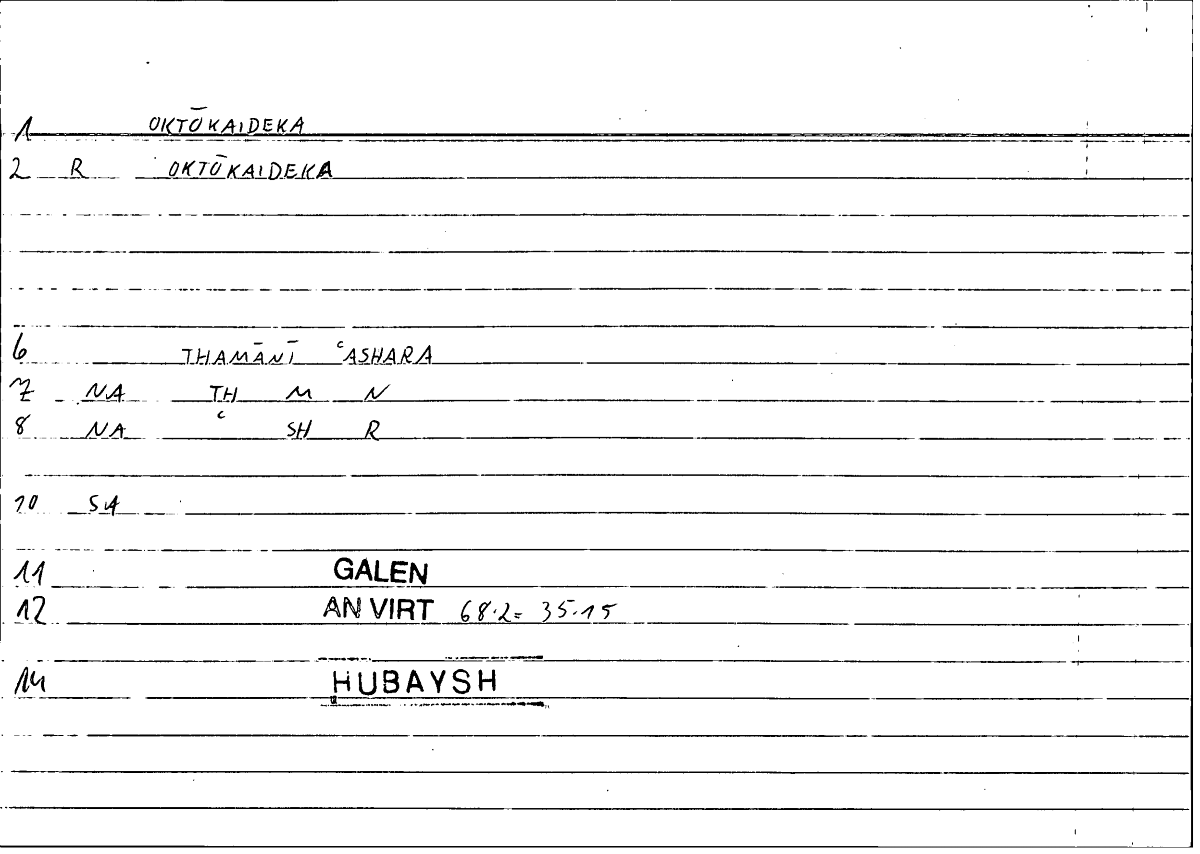 1 OKTŌKAIDEKA
2 R OKTŌKAIDEKA
6 THAMĀNĪ ʿASHARA
7 NA TH M N
8 NA ʿ SH R
10 SA
11 GALEN
12 AN VIRT 68.2= 35.15
14 HUBAYSH